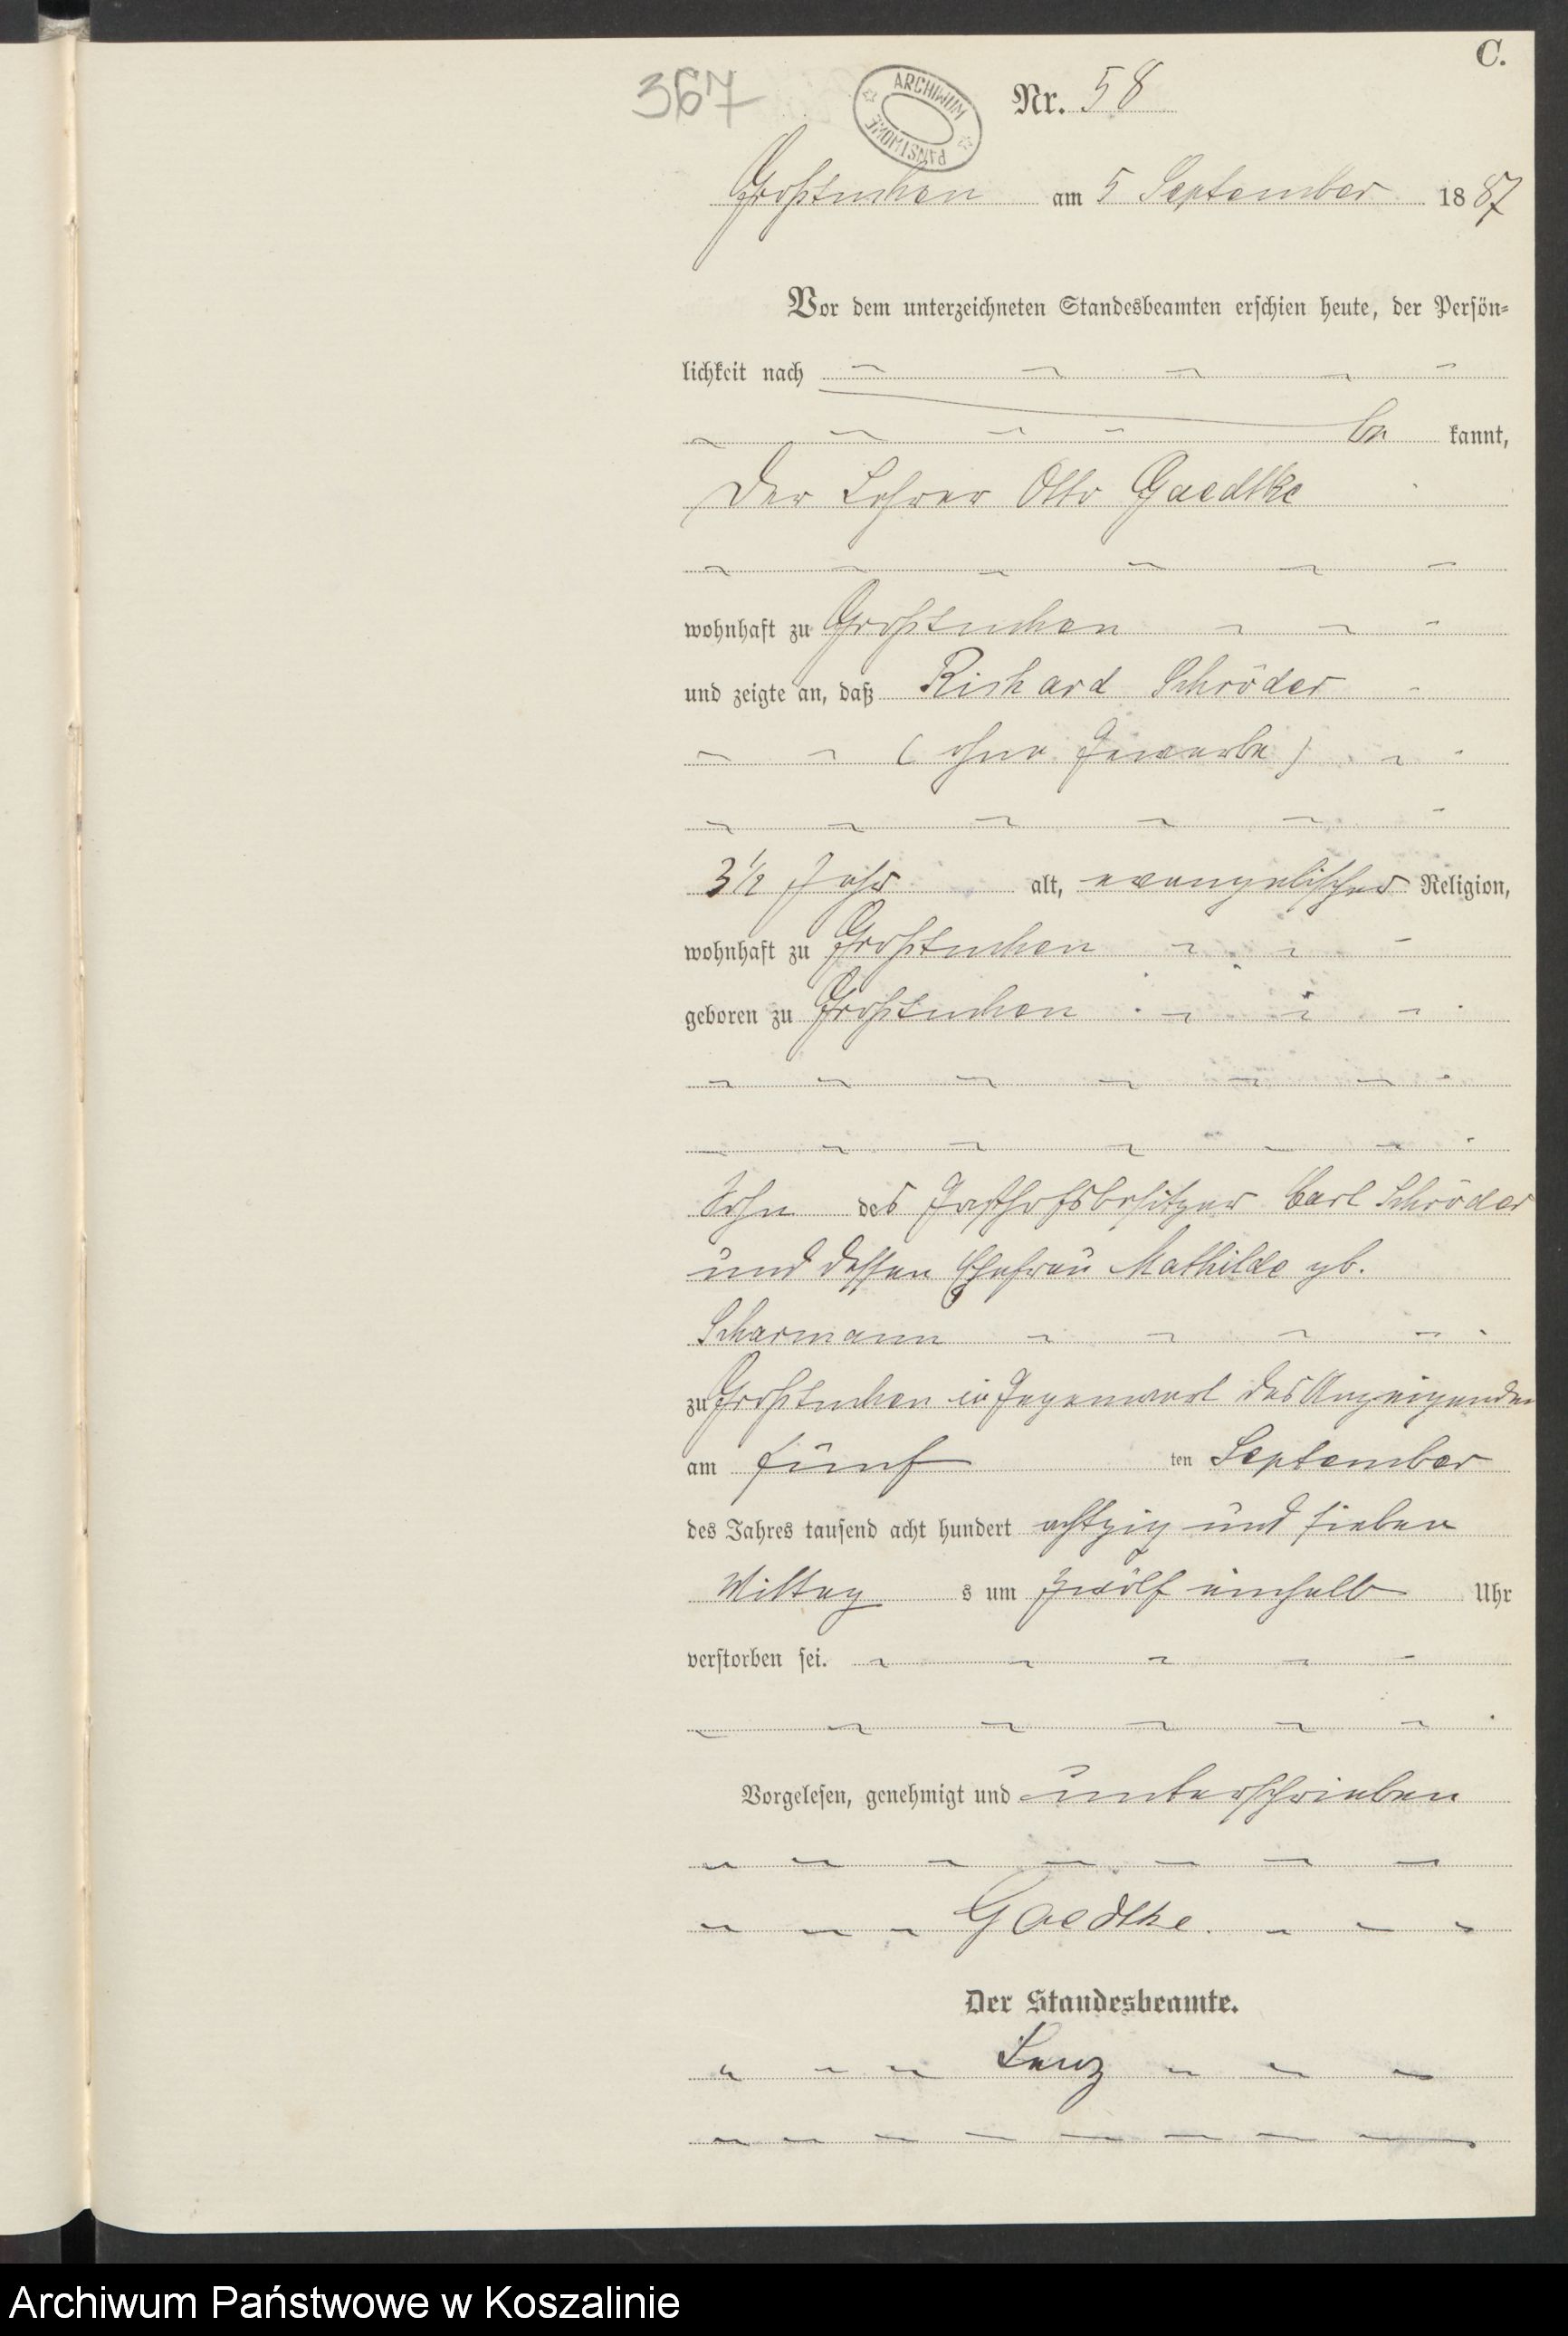 C.
367
ARCHIWUM PAŃSTWOWE
Nr. 58
Großtuchen am 5 September 1887
Vor dem unterzeichneten Standesbeamten erschien heute, der Persön-
lichkeit nach
be kannt,
Der Lehrer Otto Gaedtke
wohnhaft zu Großtuchen
und zeigte an, daß Richard Schröder
(ohne Gewerbe)
3 1/2 Jahr alt, evangelischer Religion,
wohnhaft zu Großtuchen
geboren zu Großtuchen
Sohn des Gasthofsbesitzer Carl Schröder
und dessen Ehefrau Mathilde gb.
Scharmann
zu Großtuchen in Gegenwart des Anzeigenden
am fünf ten September
des Jahres tausend acht hundert achtzig und sieben
Mittag s um zwölf einhalb Uhr
verstorben sei.
Vorgelesen, genehmigt und unterschrieben
Gaedtke.
Der Standesbeamte.
Lenz
Archiwum Państwowe w Koszalinie